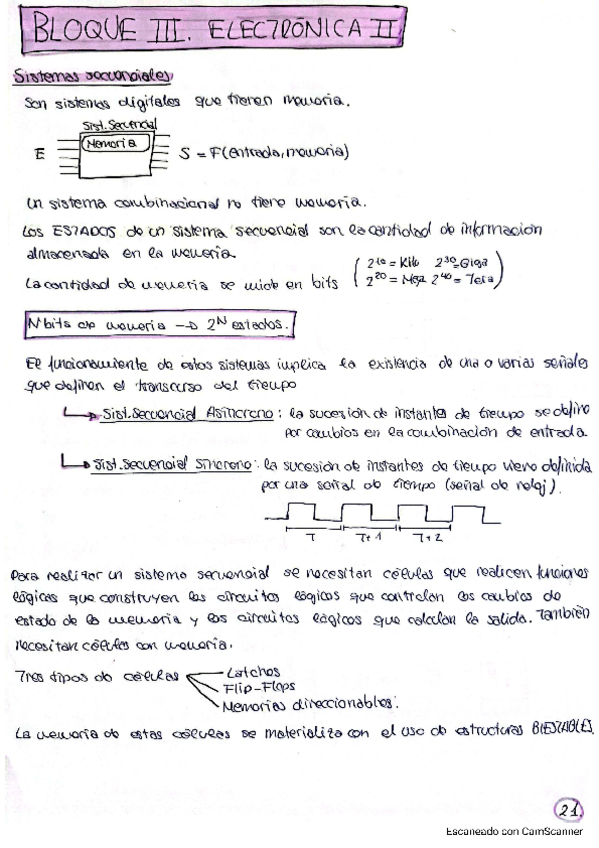 BLOQUE III. ELECTRÓNICA II
Sistemas secuenciales
Son sistemas digitales que tienen memoria.
Sist. Secuencial
Memoria
E
S = F(entrada, memoria)
Un sistema combinacional no tiene memoria.
Los ESTADOS de un sistema secuencial son la cantidad de información
almacenada en la memoria.
La cantidad de memoria se mide en bits
2^10 = Kilo 2^30 = Giga
2^20 = Mega 2^40 = Tera
N bits de memoria → 2^N estados.
El funcionamiento de estos sistemas implica la existencia de una o varias señales
que definen el transcurso del tiempo
Sist. Secuencial Asíncrono: la sucesión de instantes de tiempo se define
por cambios en la combinación de entrada.
Sist. Secuencial Síncrono: la sucesión de instantes de tiempo viene definida
por una señal de tiempo (señal de reloj).
T T+1 T+2
Para realizar un sistema secuencial se necesitan células que realicen funciones
lógicas que construyen los circuitos lógicos que controlan los cambios de
estado de la memoria y los circuitos lógicos que calculan la salida. También
necesitan células con memoria.
Tres tipos de células
Latches
Flip-Flops
Memorias direccionables.
La memoria de estas células se materializa con el uso de estructuras BIESTABLES.
21.
Escaneado con CamScanner